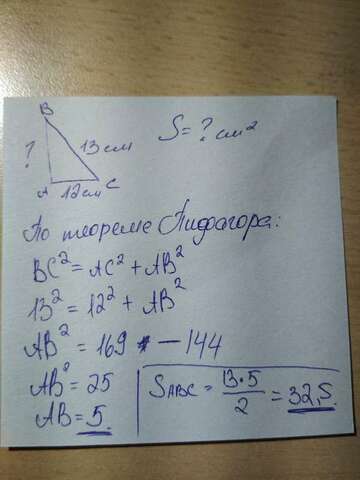 B
S = ? см²
? 13 см
A 12 см C
По теореме Пифагора:
BC² = AC² + AB²
13² = 12² + AB²
AB² = 169 — 144
AB² = 25
AB = 5
S ABC = 13·5/2 = 32,5